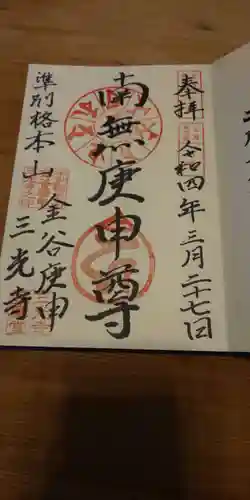 奉拝
令和四年三月二十七日
南無庚申尊
準別格本山
金谷庚申
三光寺